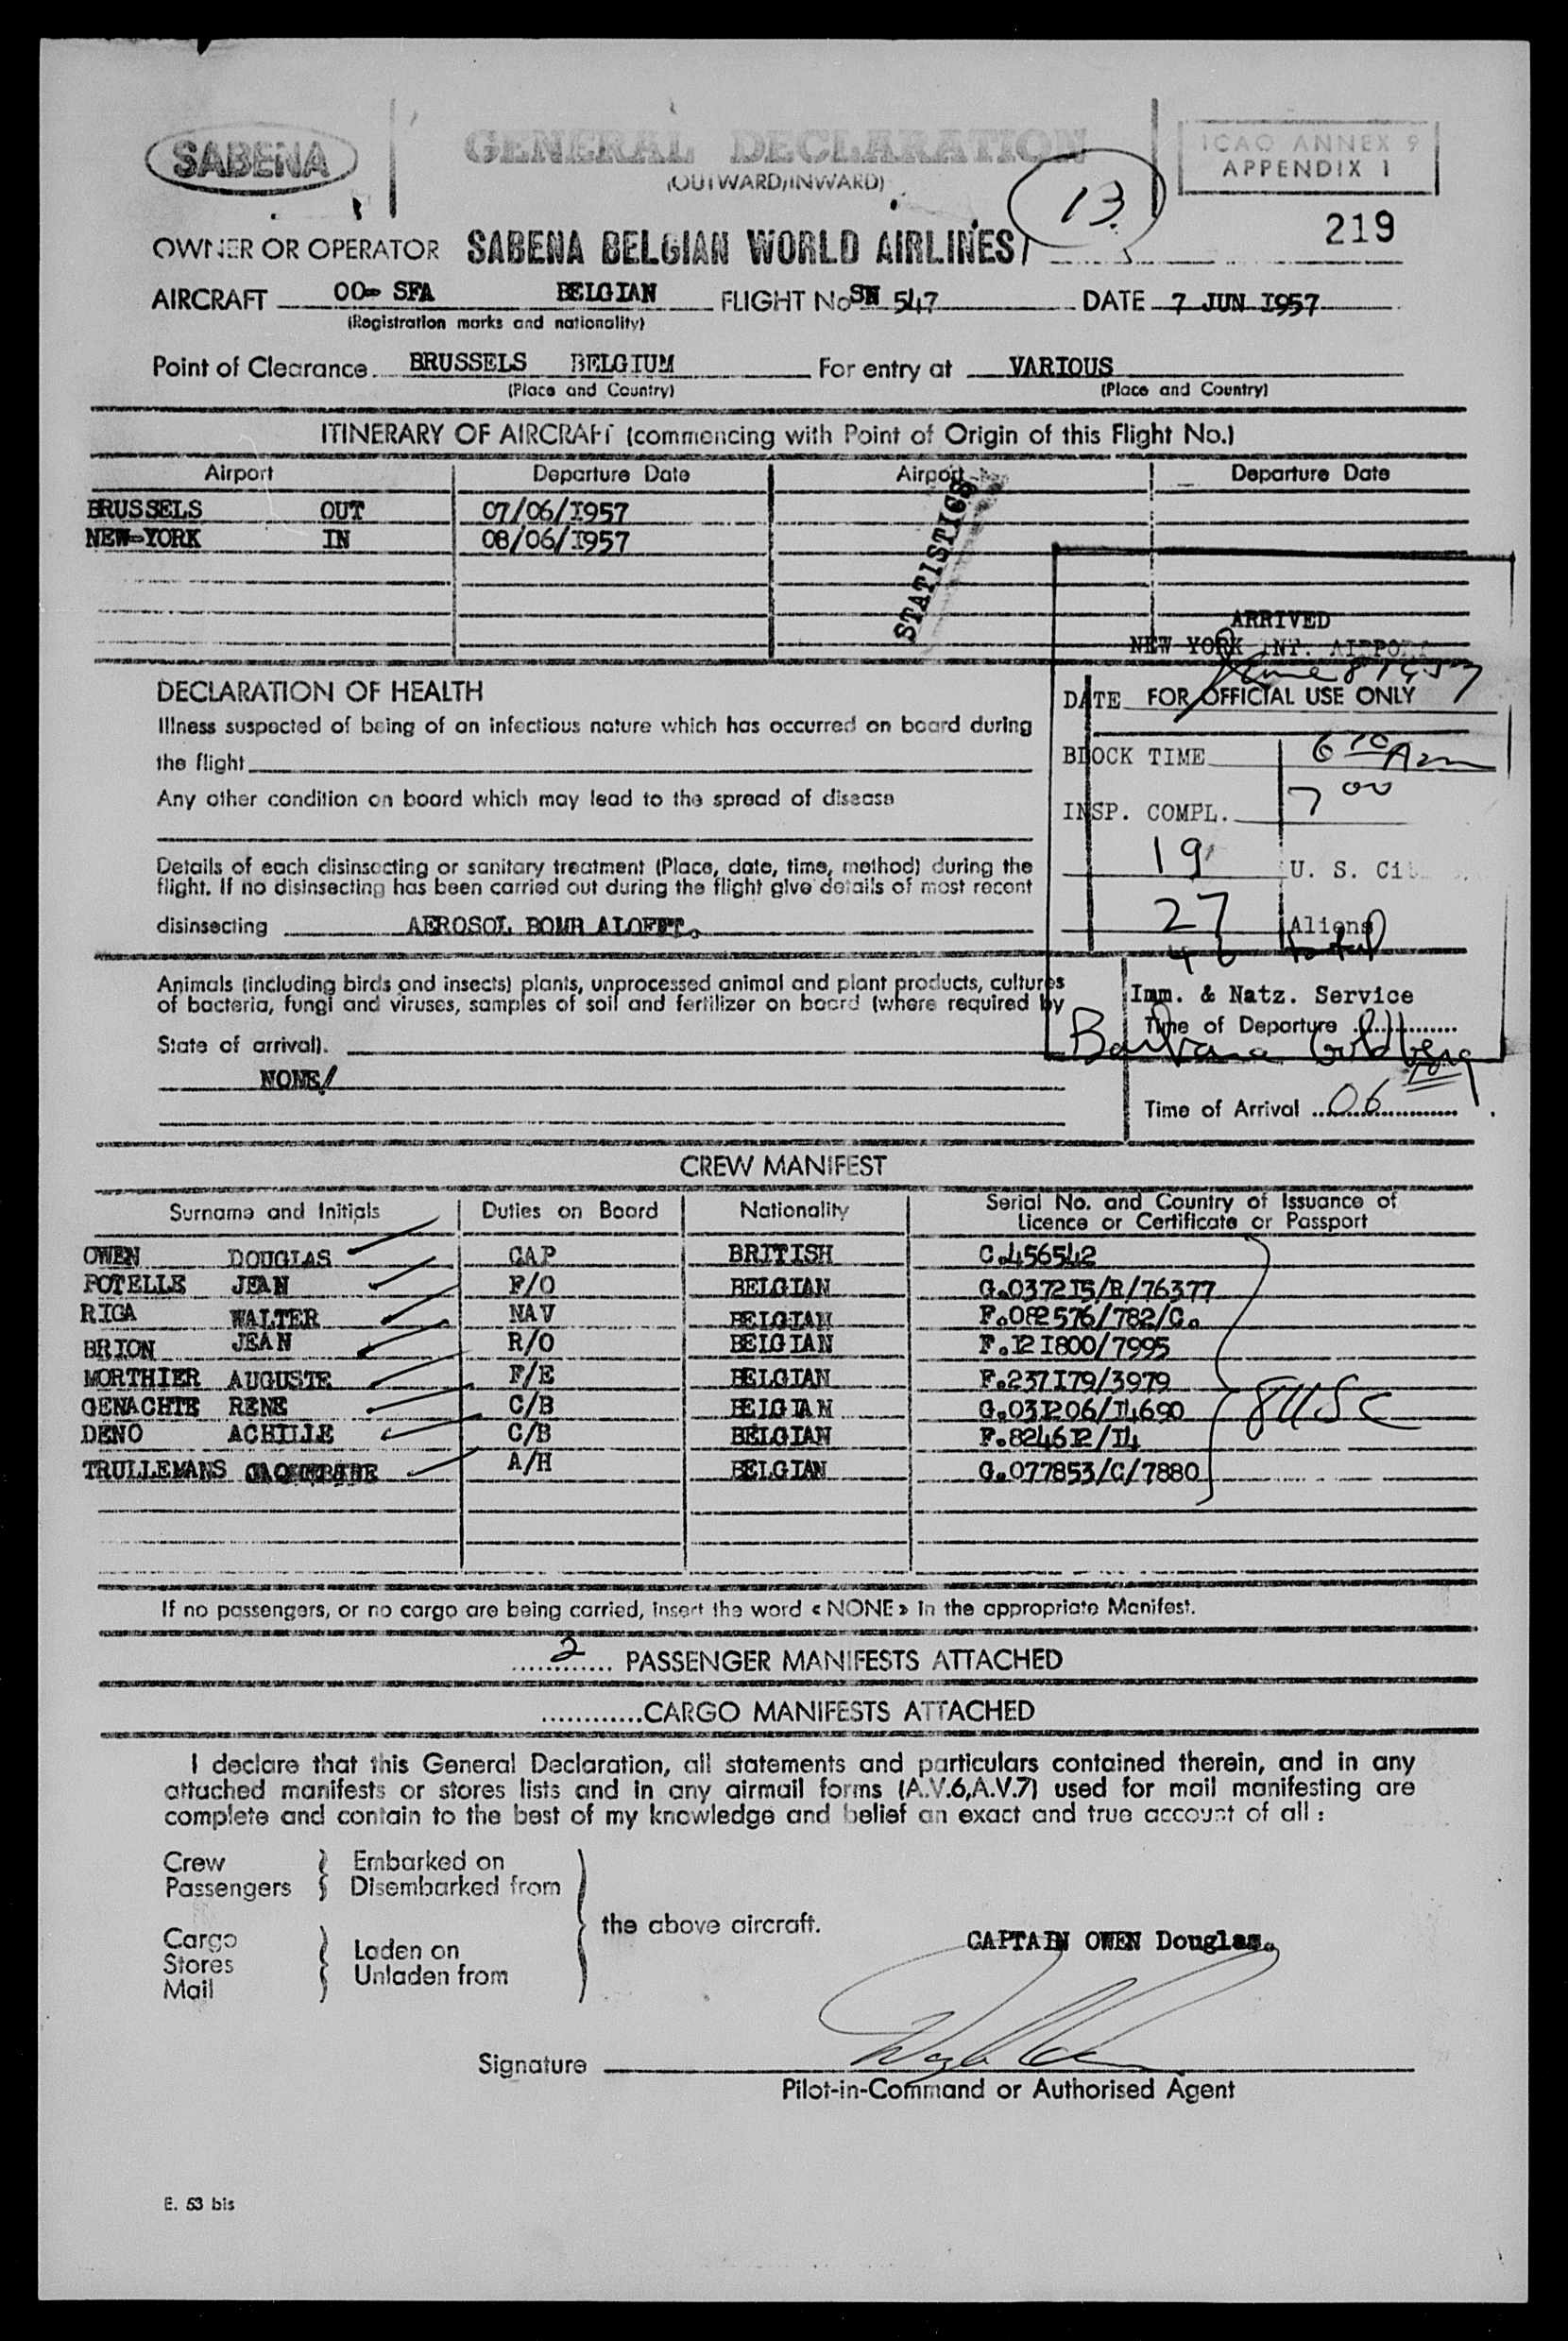 SABENA
GENERAL DECLARATION
(OUTWARD/INWARD)
ICAO ANNEX 9
APPENDIX 1
13.
219
OWNER OR OPERATOR SABENA BELGIAN WORLD AIRLINES
AIRCRAFT OO- SFA BELGIAN FLIGHT No SN 547 DATE 7 JUN I957
(Registration marks and nationality)
Point of Clearance BRUSSELS BELGIUM For entry at VARIOUS
(Place and Country) (Place and Country)
ITINERARY OF AIRCRAFT (commencing with Point of Origin of this Flight No.)
Airport Departure Date Airport Departure Date
BRUSSELS OUT 07/06/I957
NEW-YORK IN 08/06/I957
STATISTICS
ARRIVED
NEW YORK INT. AIRPORT
June 8 1957
DECLARATION OF HEALTH
DATE FOR OFFICIAL USE ONLY
Illness suspected of being of an infectious nature which has occurred on board during
the flight
BLOCK TIME 6 10 Am
Any other condition on board which may lead to the spread of disease
INSP. COMPL. 7 00
Details of each disinsecting or sanitary treatment (Place, date, time, method) during the
flight. If no disinsecting has been carried out during the flight give details of most recent
19 U. S. Cit
disinsecting AEROSOL BOMB ALOFFT.
27 Aliens
46 total
Animals (including birds and insects) plants, unprocessed animal and plant products, cultures
of bacteria, fungi and viruses, samples of soil and fertilizer on board (where required by
State of arrival).
NONE/
Imm. & Natz. Service
Time of Departure
Barbara Goldberg
Time of Arrival 06 10
CREW MANIFEST
Surname and Initials Duties on Board Nationality Serial No. and Country of Issuance of
Licence or Certificate or Passport
OWEN DOUGLAS CAP BRITISH C.456542
POTELLE JEAN F/O BELGIAN G.0372I5/R/76377
RIGA WALTER NAV BELGIAN F.082576/782/C.
BRION JEAN R/O BELGIAN F.I2I800/7995
MORTHIER AUGUSTE F/E BELGIAN F.237I79/3979
GENACHTE RENE C/B BELGIAN G.03I206/I4690
DENO ACHILLE C/B BELGIAN F.8246I2/I4
TRULLEMANS A/H BELGIAN G.077853/C/7880
If no passengers, or no cargo are being carried, insert the word « NONE » in the appropriate Manifest.
2 PASSENGER MANIFESTS ATTACHED
CARGO MANIFESTS ATTACHED
I declare that this General Declaration, all statements and particulars contained therein, and in any
attached manifests or stores lists and in any airmail forms (A.V.6,A.V.7) used for mail manifesting are
complete and contain to the best of my knowledge and belief an exact and true account of all :
Crew Embarked on
Passengers Disembarked from
the above aircraft.
Cargo
Stores
Mail
Laden on
Unladen from
CAPTAIN OWEN Douglas.
Signature
Pilot-in-Command or Authorised Agent
E. 53 bis